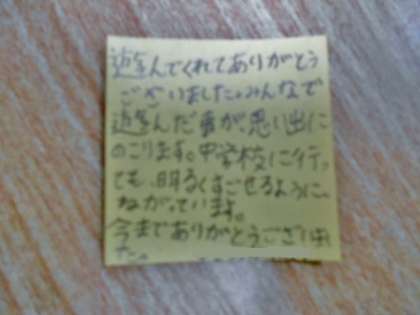 遊んでくれてありがとう
ございました。みんなで
遊んだ事が、思い出に
のこります。中学校に行っ
ても、明るくすごせるように、
ねがっています。
今までありがとうございまし
た。